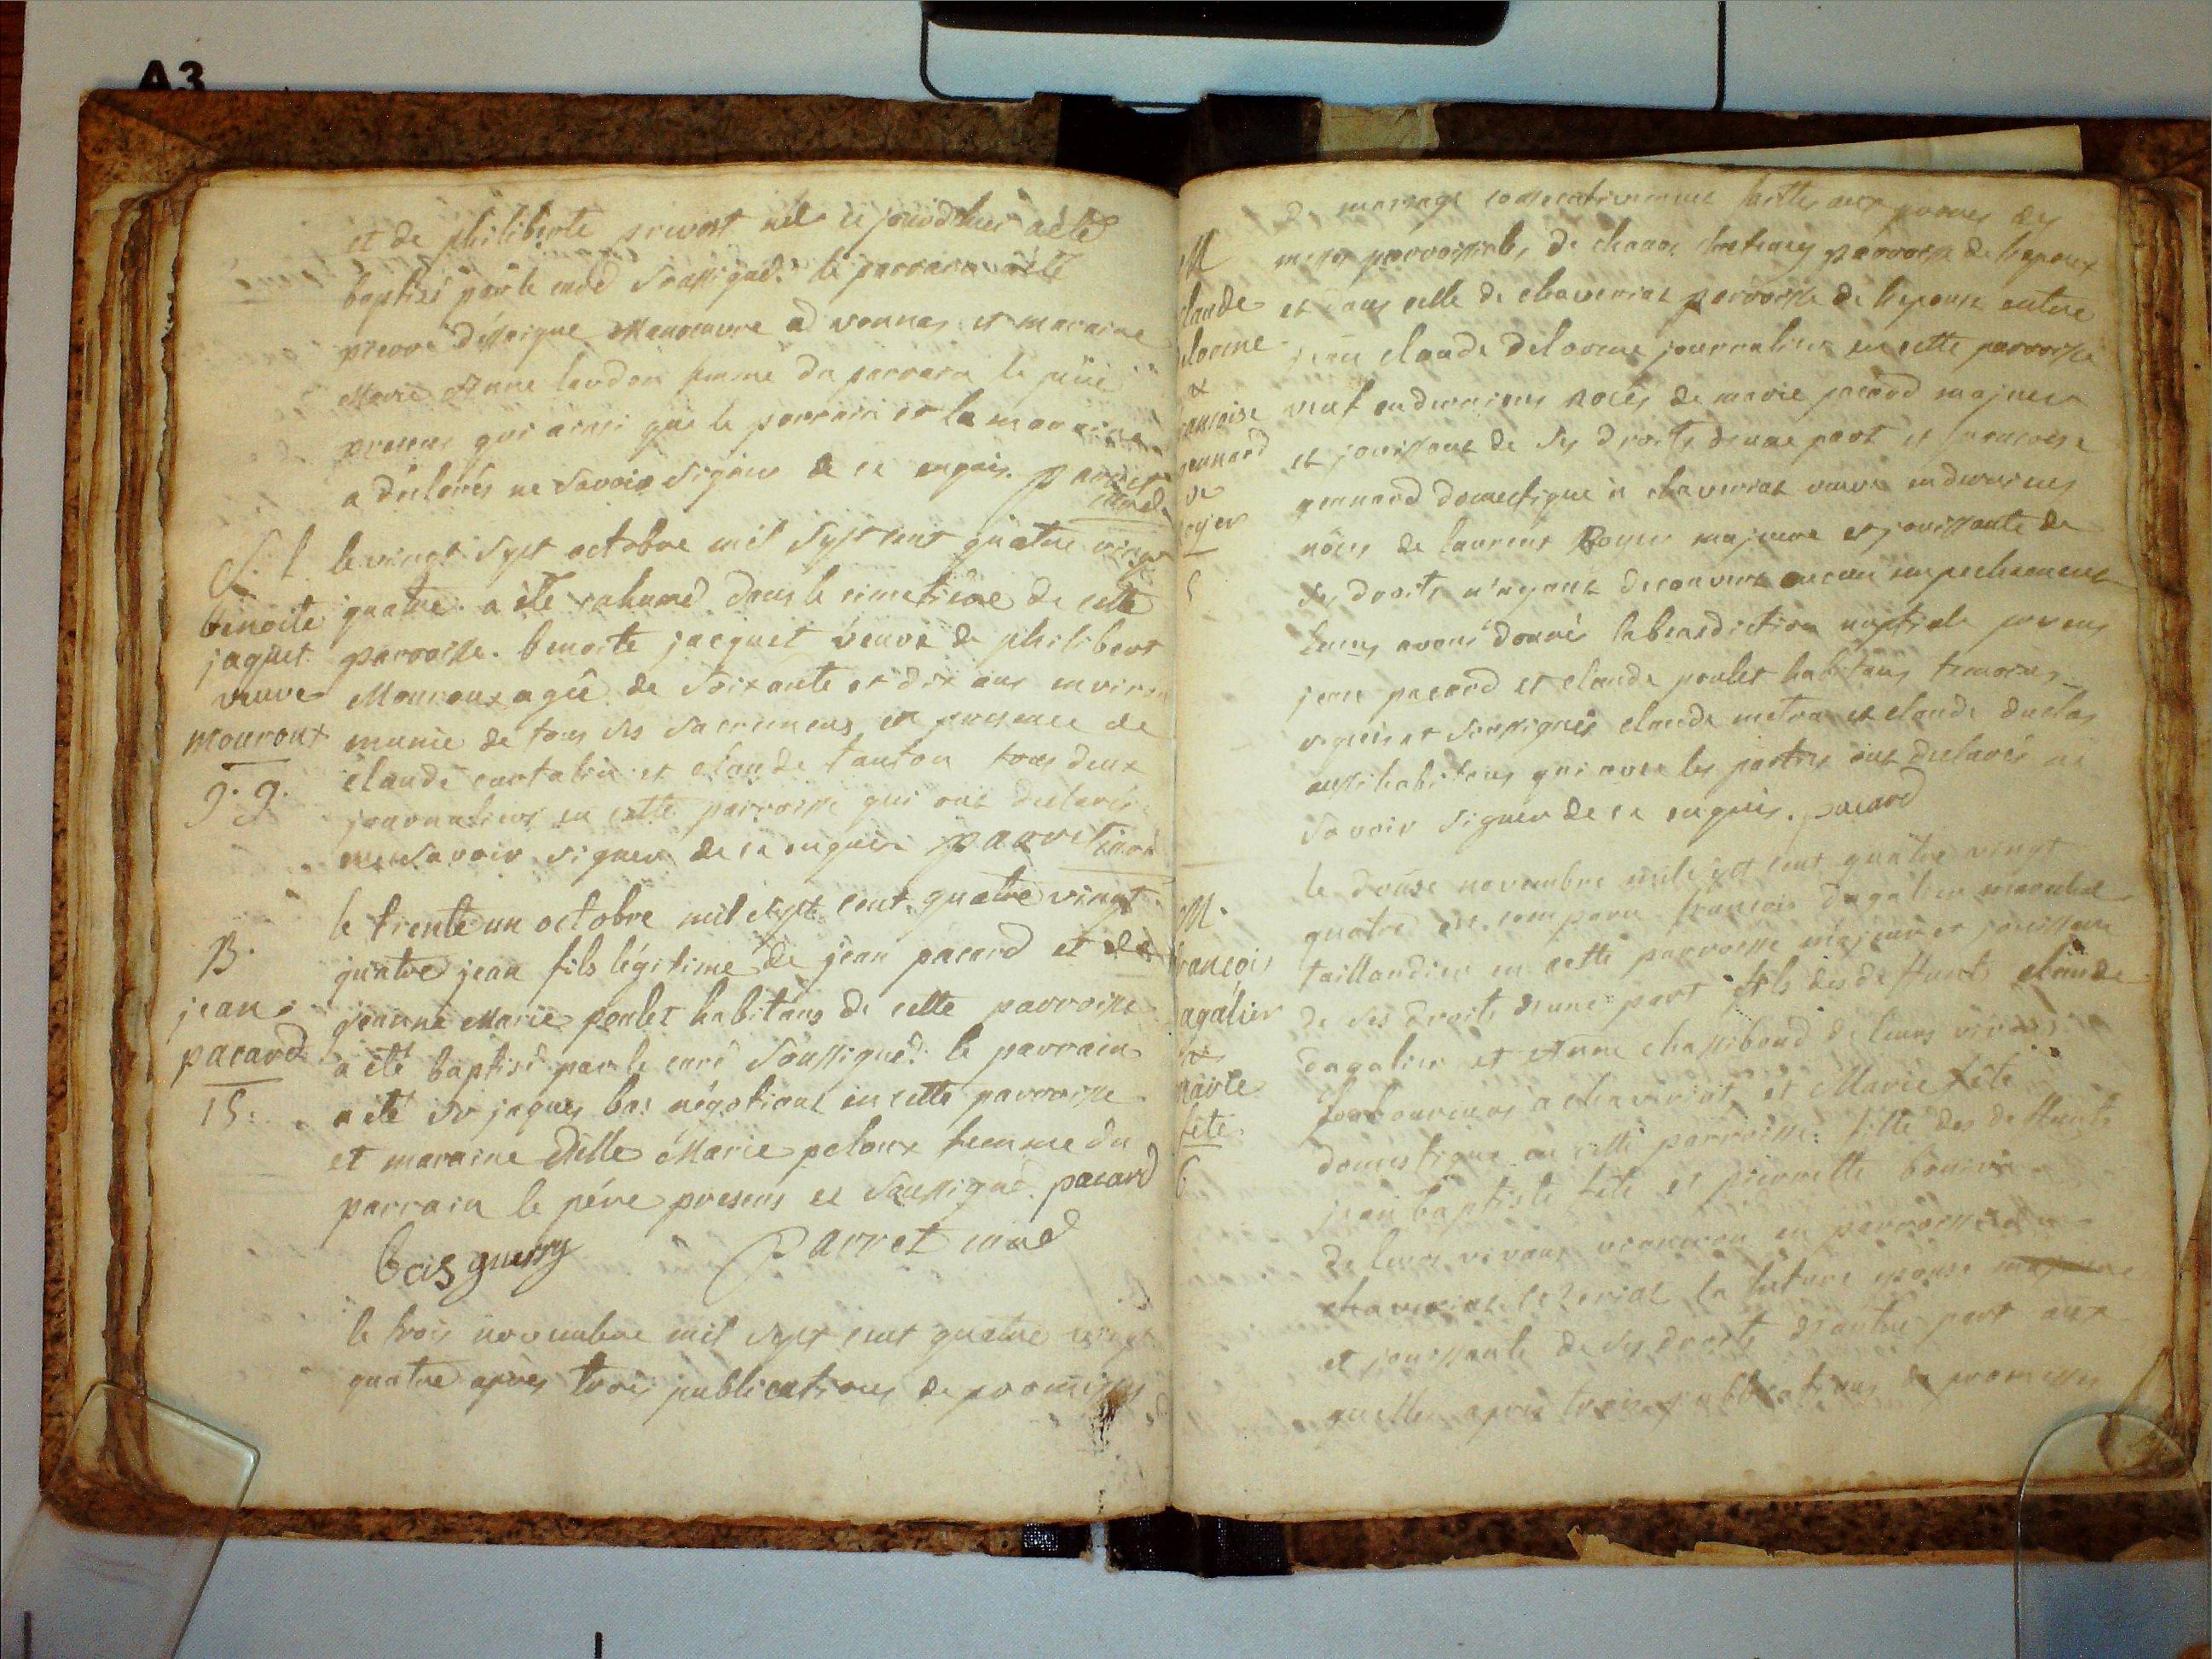 A3
et de philiberte prevost né ce jourdhuer a été
baptisé par le curé soussigné. le parrain a été
pierre Manoeuvre a vonnas et maraine
Marie Anne laudon femme du parrain le père
presens qui ainsi que le parrain et la maraine
a déclarés ne savoir signer de ce enquis. parret
curé
S. t.
benoite
jaquet
veuve
mouroux
g. g.
le vingt sept octobre mil sept cent quatre vingt
quatre a été inhumé dans le cimetiere de cette
parroisse. benoite jacquet veuve de philibert
Mouroux agée de soixante et dix ans environ
munie de tous ses sacremens en presence de
claude curtalin et claude tanton tous deux
journaliers en cette parroisse qui ont declarés
ne savoir signer de ce enquis parret curé
B.
jean
pacard
15.
le trente un octobre mil sept cent quatre vingt
quatre jean fils légitime de jean pacard et de
jeanne Marie poulet habitans de cette parroisse
a été baptisé par le curé soussigné. le parrain
a été sr jaques bas négotiant en cette parroisse
et maraine Delle Marie peloux femme du
parrain le pére presens et soussigné. pacard
bas guerry parret curé
le trois novembre mil sept cent quatre vingt
quatre après trois publications de promesses
M
claude
delorme
&
francoise
gennard
ve
royer
de mariage consecutivement faittes aux prones des
messes parroissiales de parroisse de l'epoux
et dans celle de chaveriat parroisse de l'epouse entre
jean claude delorme journalier en cette parroisse
veuf en dernieres noces de marie pacard majeur
et jouissant de ses droits d'une part et francoise
gennard domestique a chaveriat veuve en dernieres
nôces de laurent Royer majeure et jouissante de
ses droits n'ayant decouvert aucun empechement
leurs avons donnés la benediction nuptiale presens
jean pacard et claude poulet habitans temoins
requis et soussignés claude metra et claude duclos
aussi habitans qui avec les parties ont declarés ne
savoir signer de ce enquis. pacard
M.
françois
dagalier
&
marie
fété
6
le douse novembre mil sept cent quatre vingt
quatre est comparu francois dagalier marechal
taillandier en cette parroisse majeur et jouissant
de ses droits d'une part fils des deffunts claude
dagalier et Anne chassiboud de leurs vivans
laboureurs a chaveriat et Marie fété
domestique en cette parroisse fille des deffunts
jean baptiste fété et pierrette
de leurs vivans en parroisse de
chaveriat la future epouse majeure
et jouissante de ses droits d'autre part aux
quelles après trois publications de promesses